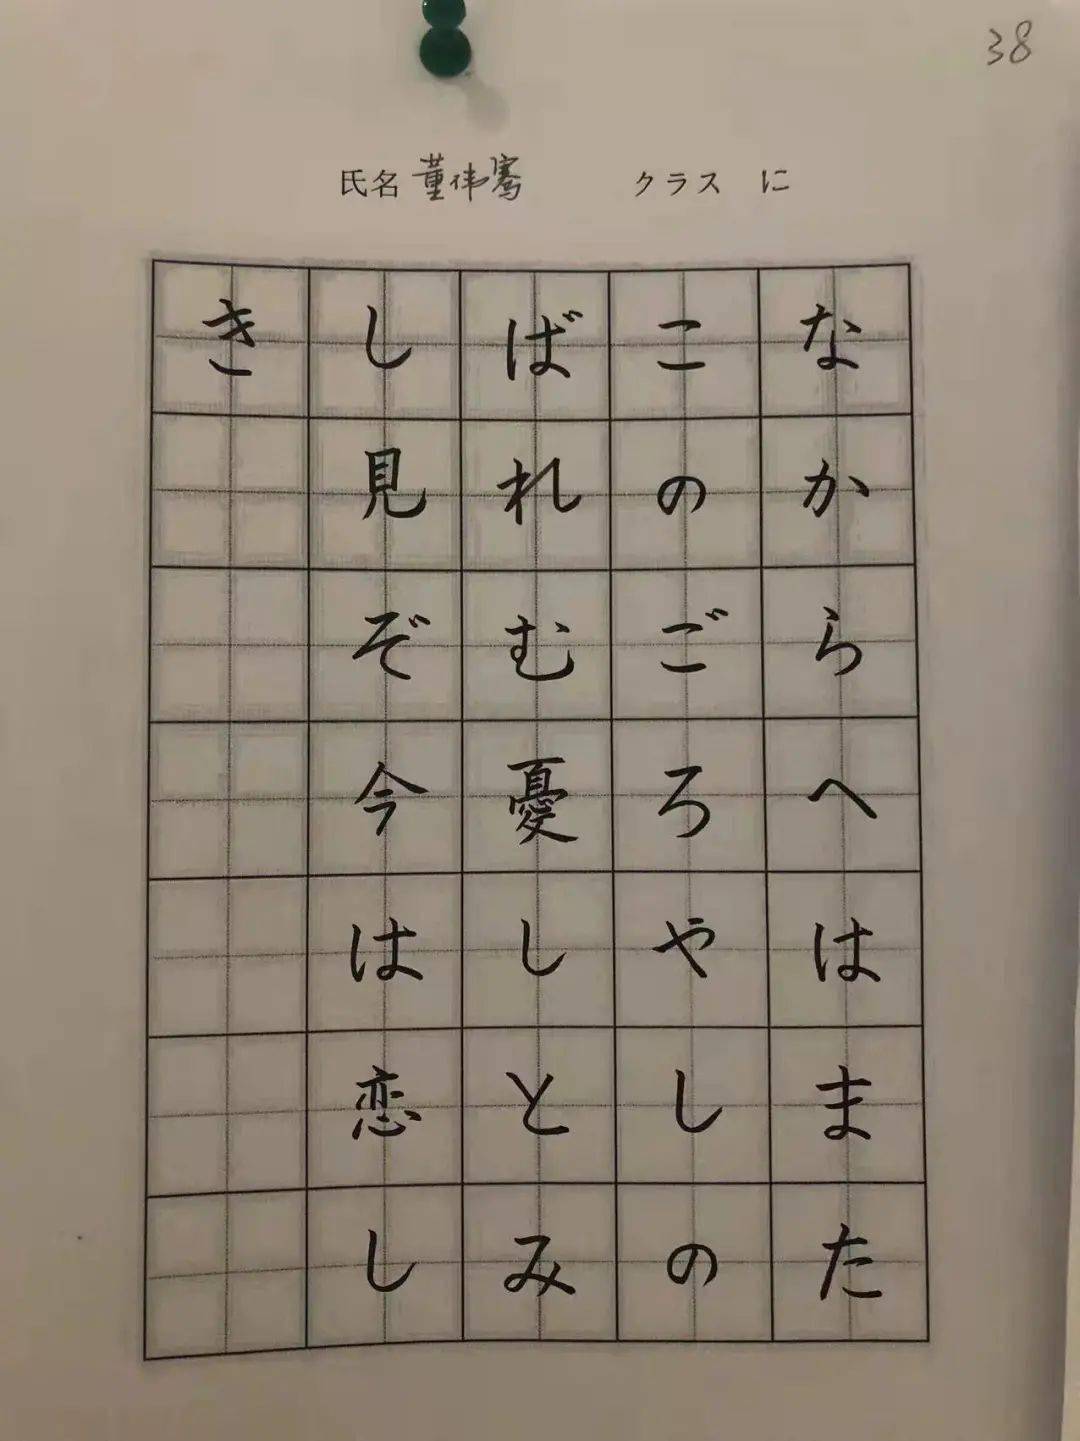 38
氏名 董伟骞 クラス に
なからへはまた
このごろやしの
ばれむ憂しとみ
し見ぞ今は恋し
き